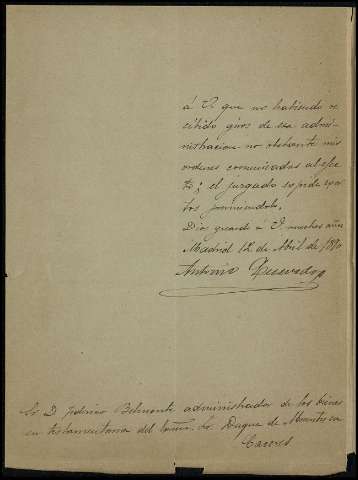 á V. que no habiendo re
cibido giros de esa admi-
nistracion no obstante mis
ordenes comunicadas al efec
to; el juzgado
Dios guarde a V. muchos años
Madrid 12 de Abril de 1890
Antonio
Sr. D. Federico Belmonte administrador de los bienes
en testamentaria del Sr. Duque de Montes en
Caceres